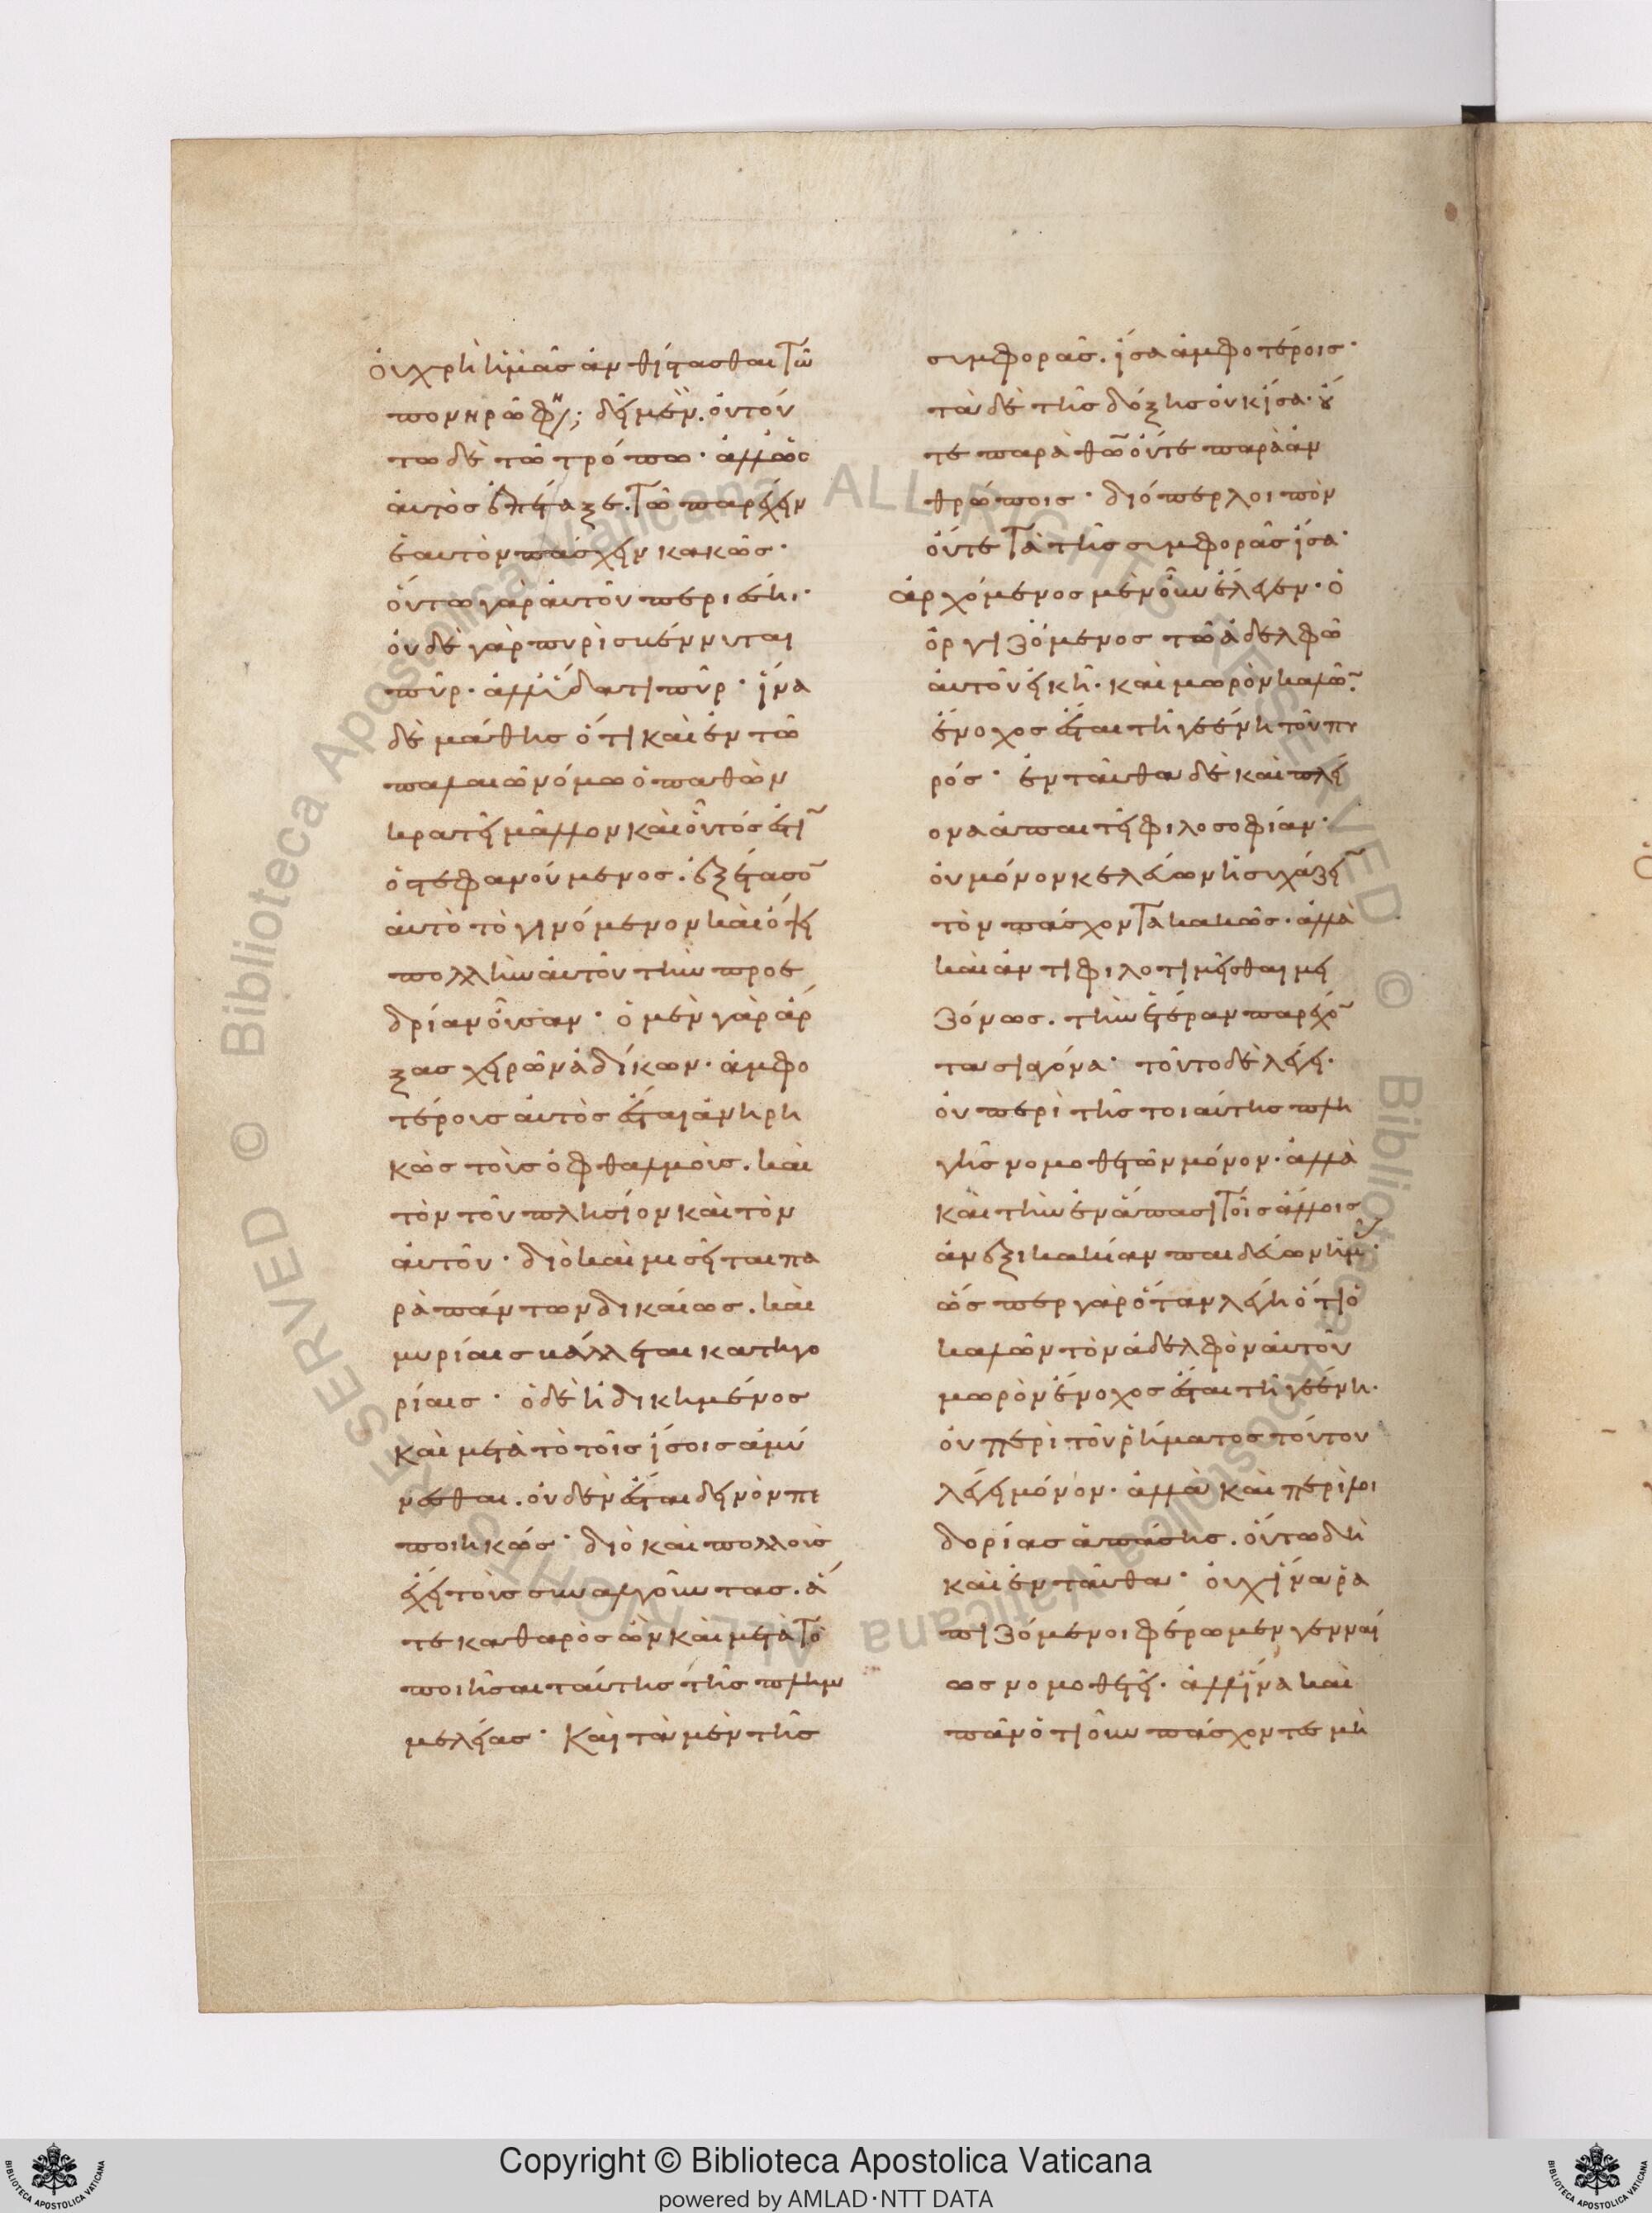 ὀυ χρὴ ἡμᾶς ἀνθίστασθαι τῶ
πονηρῶ φη; δεῖ μέν. ὀυ τού
τω δὲ τῶ τρόπω· ἀλλ' ὡς
ἀυτὸς ἐπέταξε. τῶ παρέχειν
ἑαυτὸν πάσχειν κακῶς·
ὅυτω γὰρ ἀυτοῦ περιέσηι·
ὀυδὲ γὰρ πυρὶ σβέννυται
πῦρ. ἀλλ' ὕδατι πῦρ· ἵνα
δὲ μάθης ὅτι καὶ ἐν τῶ
παλαιῶ νόμω ὁ παθὼν
κρατεῖ μᾶλλον καὶ οὗτός ἐστῖ
ὁ στεφανούμενος. ἐξέτασο̄
ἀυτὸ τὸ γινόμενον καὶ ὄψει
πολλὴν ἀυτοῦ τὴν προε
δρίαν οὖσαν· ὁ μὲν γὰρ ἄρ
ξας χειρῶν ἀδίκων. ἀμφο
τέρους ἀυτὸς ἔσται ἀνηρη
κὼς τοὺς ὀφθαλμοὺς. καὶ
τὸν τοῦ πλησίον καὶ τὸν
ἀυτοῦ· διὸ καὶ μισεῖται πα
ρὰ πάντων δικαίως. καὶ
μυρίαις βάλλεται κατηγο
ρίαις· ὁ δὲ ἠδικημένος
καὶ μετὰ τὸ τοῖς ἴσοις ἀμύ
νασθαι. ὀυδὲν ἔσται δεινὸν πε
ποιηκώς· διὸ καὶ πολλοὺς
ἔχει τοὺς συναλγοῦντας. ἅ
τε καθαρὸς ὢν καὶ μετὰ τὸ
ποιῆσαι ταύτης τῆς πλημ
μελείας· Καὶ τὰ μὲν τῆς
συμφορᾶς. ἴσα ἀμφοτέροις·
τὰ δὲ τῆς δόξης ὀυκ ἴσα· ὄυ
τε παρὰ θῶ ὄυτε παρὰ ἀν
θρώποις· διόπερ λοιπὸν
ὄυτε τὰ τῆς συμφορᾶς ἴσα·
ἀρχόμενος μὲν οὖν ἔλεγεν· ὁ
ὀργιζόμενος τῶ ἀδελφῶ
ἀυτοῦ εἰκῆ. καὶ μωρὸν καλῶ̄.
ἔνοχος ἔσται τῆ γεένη τοῦ πυ
ρός· ἐνταῦθα δὲ καὶ πλεί
ονα ἀπαιτεῖ φιλοσοφίαν·
ὀυ μόνον κελεύων ἡσυχάζεῑ
τὸν πάσχοντα κακῶς. ἀλλὰ
καὶ ἀντιφιλοτιμεῖσθαι μει
ζόνως. τὴν ἑτέραν παρέχο̄
τα σιαγόνα· τοῦτο δὲ λέγει.
ὀυ περὶ τῆς τοιαύτης πλη
γῆς νομοθετῶν μόνον. ἀλλὰ
καὶ τὴν ἐν ἅπασι τοῖς ἄλλοις
ἀνεξικακίαν παιδεύων ἡμᾶς.
ὥσπερ γὰρ ὅταν λέγη ὅτι ὁ
καλῶν τὸν ἀδελφὸν ἀυτοῦ
μωρὸν ἔνοχος ἔσται τῆ γεένη.
ὀυ περὶ τοῦ ῥήματος τούτου
λέγει μόνον. ἀλλὰ καὶ περὶ λοι
δορίας ἁπάσης. ὅυτω δὴ
καὶ ἐνταῦθα· ὀυχ ἵνα ῥα
πιζόμενοι φέρωμεν γενναί
ως νομοθετεῖ. ἀλλ' ἵνα καὶ
πᾶν ὁτιοῦν πάσχοντες μὴ
Copyright © Biblioteca Apostolica Vaticana
powered by AMLAD·NTT DATA